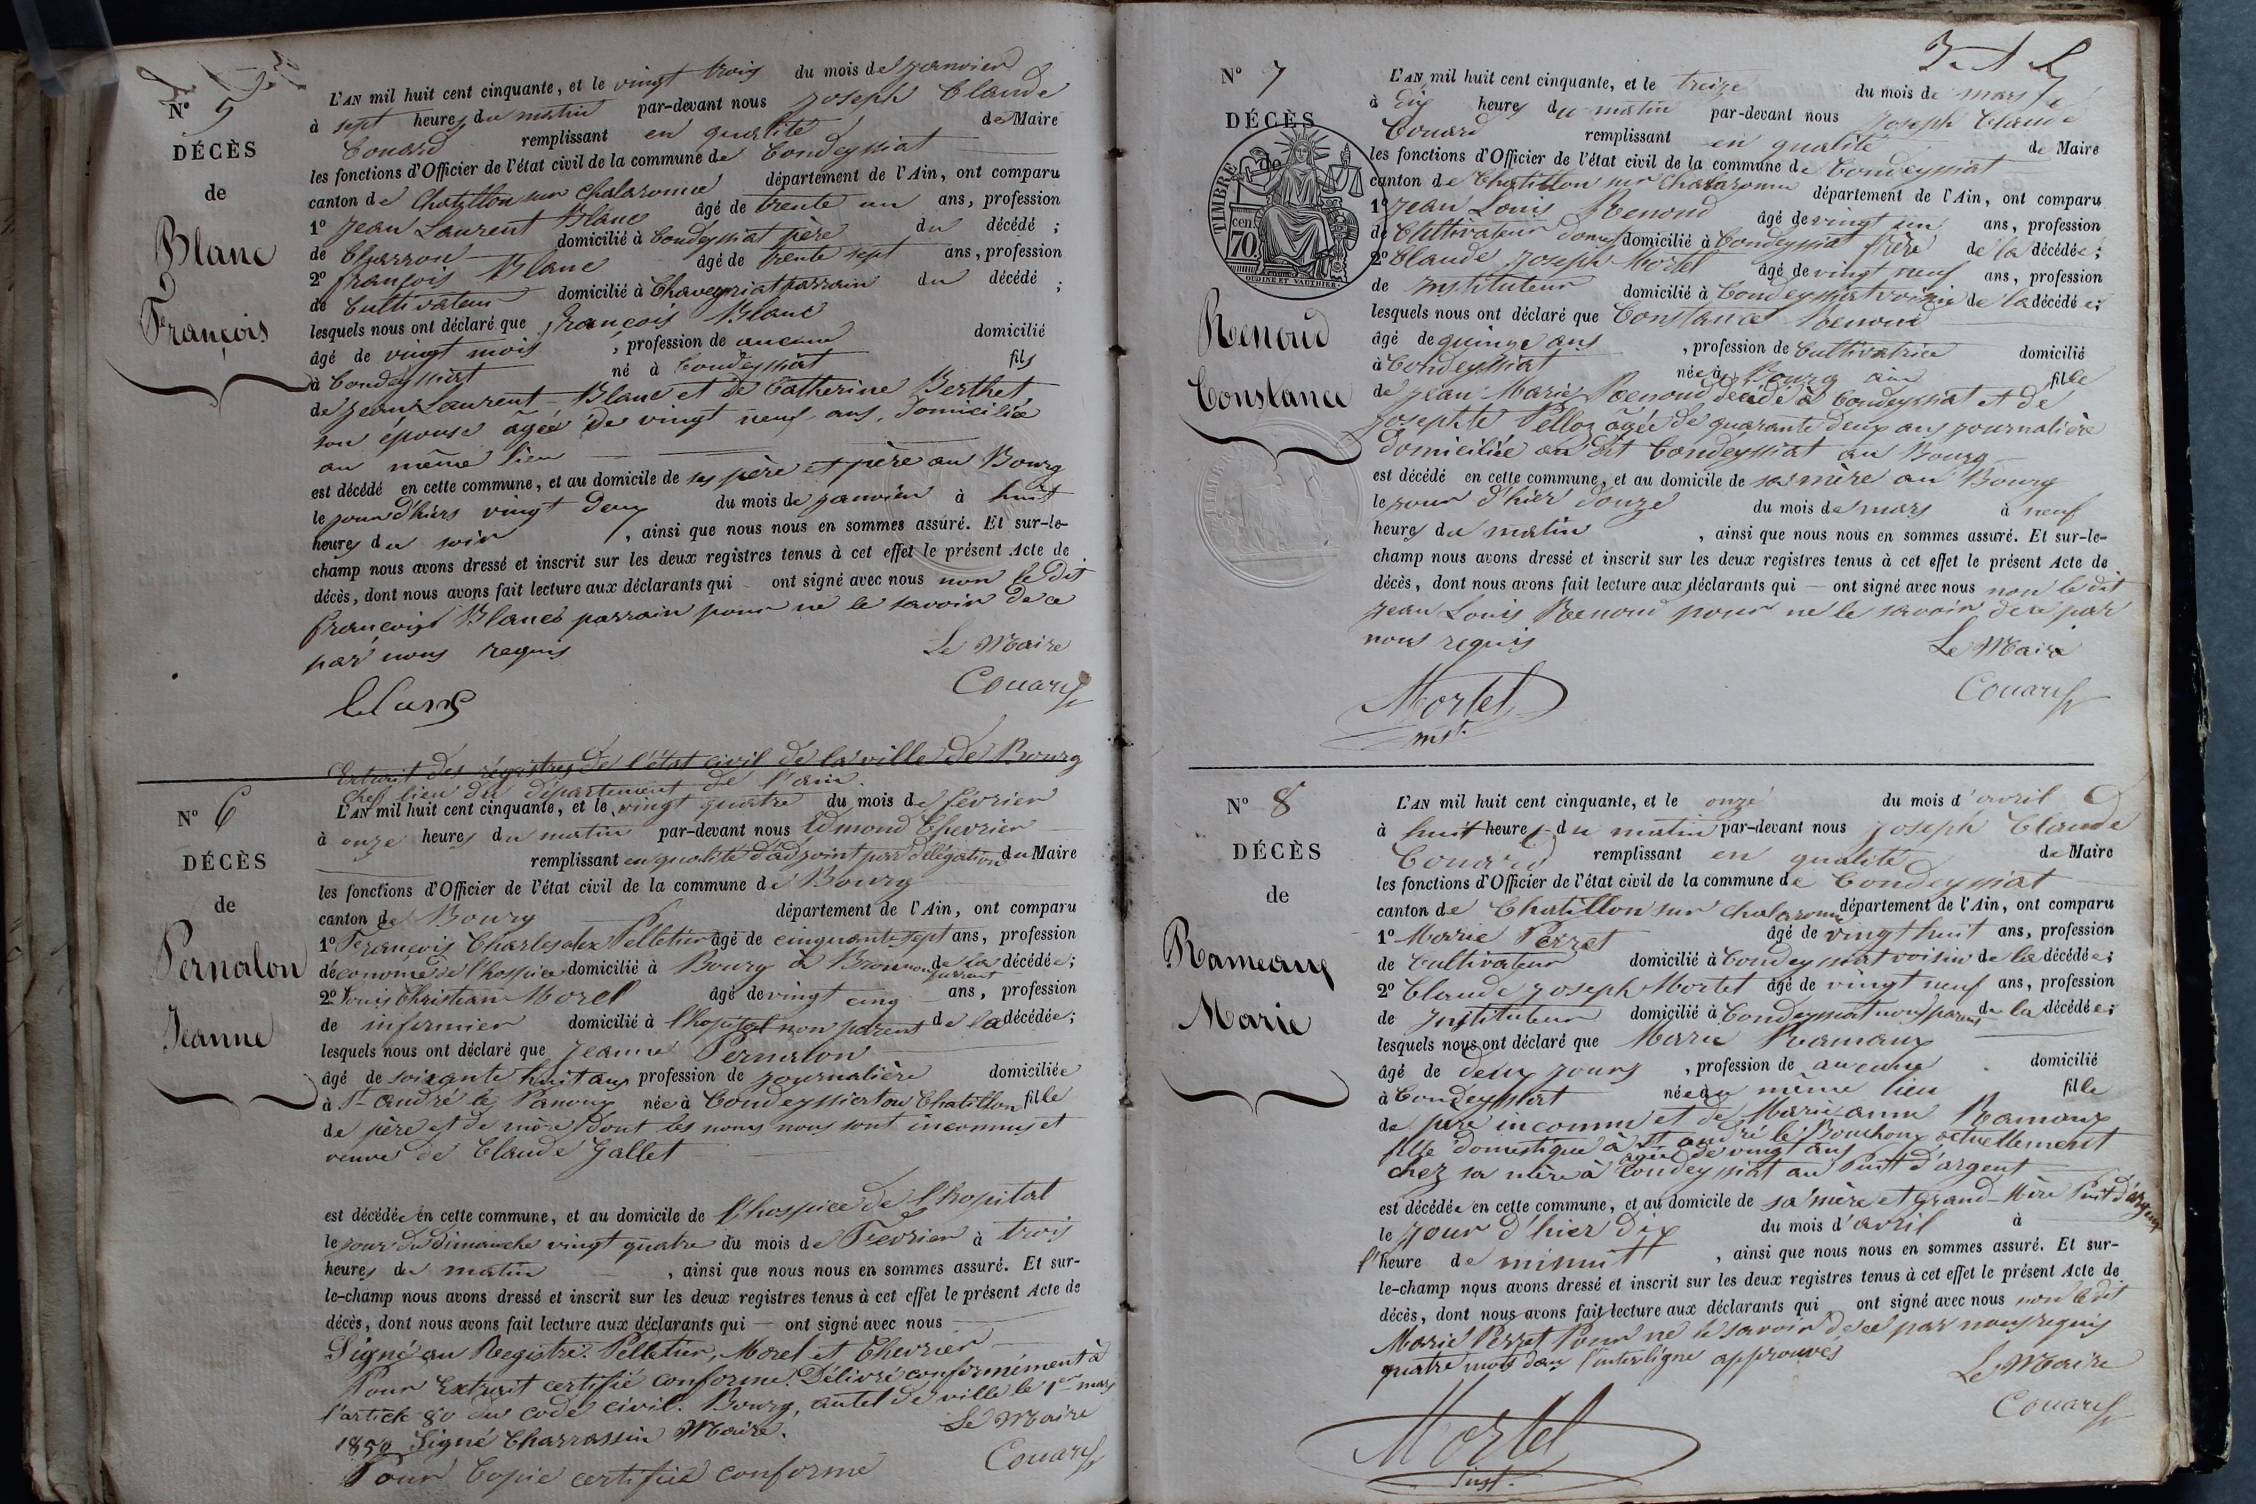 N° 5
DÉCÈS
de
Blanc
François
L'AN mil huit cent cinquante, et le vingt trois du mois de janvier
à sept heures du matin par-devant nous Joseph Claude
Couard remplissant en qualité de Maire
les fonctions d'Officier de l'état civil de la commune de Condeyssiat
canton de Chatillon sur Chalaronne département de l'Ain, ont comparu
1° Jean Laurent Blanc âgé de trente un ans, profession
de Charron domicilié à Condeyssiat père du décédé ;
2° françois Blanc âgé de trente sept ans, profession
de Cultivateur domicilié à Chaveyriat parrain du décédé ;
lesquels nous ont déclaré que françois Blanc
âgé de vingt mois , profession de aucune domicilié
à Condeyssiat né à Condeyssiat fils
de Jean Laurent Blanc et de Catherine Berthet
son épouse agée de vingt neuf ans, domiciliée
au même lieu
est décédé en cette commune, et au domicile de ses père et père au Bourg
le jour d'hiers vingt deux du mois de janvier à huit
heures du soir , ainsi que nous nous en sommes assuré. Et sur-le-
champ nous avons dressé et inscrit sur les deux registres tenus à cet effet le présent Acte de
décès, dont nous avons fait lecture aux déclarants qui ont signé avec nous non le dit
françois Blanc parrain pour ne le savoir de ce
par nous requis
Le Maire
Couard
Extrait des régistres de l'état civil de la ville de Bourg
chef lieu du département de l'ain.
N° 6
DÉCÈS
de
Pernalon
Jeanne
L'AN mil huit cent cinquante, et le vingt quatre du mois de février
à onze heures du matin par-devant nous Edmond Chevrier
remplissant en qualité d'adjoint par délégation du Maire
les fonctions d'Officier de l'état civil de la commune de Bourg
canton de Bourg département de l'Ain, ont comparu
1° François Charles alex Pelletier âgé de cinquante sept ans, profession
d'économe de l'hospice domicilié à Bourg à Brou non parent de la décédée ;
2° Louis Christian Morel âgé de vingt cinq ans, profession
de infirmier domicilié à l'hopital non parent de la décédée ;
lesquels nous ont déclaré que Jeanne Pernalon
âgé de soixante huit ans profession de journalière domiciliée
à St andré le Panoux née à Condeyssiat ou Chatillon fille
de père et de mère dont les noms nous sont inconnus et
veuve de Claude Gallet
est décédée en cette commune, et au domicile de l'hospice de l'hopital
le jour du dimanche vingt quatre du mois de Février à trois
heures du matin , ainsi que nous nous en sommes assuré. Et sur-
le-champ nous avons dressé et inscrit sur les deux registres tenus à cet effet le présent Acte de
décès, dont nous avons fait lecture aux déclarants qui — ont signé avec nous
Signé au Registre. Pelletier, Morel et Chevrier
Pour Extrait certifié conforme. Délivré conformément à
l'article 80 du code civil. Bourg, autel de ville le 1er mars
1850 Signé Charrassin Maire.
Le Maire
Pour Copie certifiée conforme
Couard
N° 7
DÉCÈS
de
TIMBRE
70 cen.
OUDINE ET VAUTHIER
Renoud
Constance
L'AN mil huit cent cinquante, et le treize du mois de mars
à dix heures du matin par-devant nous Joseph Claude
Couard remplissant en qualité de Maire
les fonctions d'Officier de l'état civil de la commune de Condeyssiat
canton de Chatillon sur Chalaronne département de l'Ain, ont comparu
1° Jean Louis Renoud âgé de vingt un ans, profession
de Cultivateur domes domicilié à Condeyssiat frère de la décédée ;
2° Claude Joseph Mortel âgé de vingt neuf ans, profession
de Instituteur domicilié à Condeyssiat voisin de la décédée ;
lesquels nous ont déclaré que Constance Renoud
âgé de quinze ans , profession de Cultivatrice domicilié
à Condeyssiat née à Bourg ain fille
de Jean Marie Renoud décédé à Condeyssiat et de
Josephte Pelloz âgée de quarante deux ans journalière
domiciliée au dit Condeyssiat au Bourg
est décédé en cette commune, et au domicile de sa mère au Bourg
le jour d'hier douze du mois de mars à neuf
heures du matin , ainsi que nous nous en sommes assuré. Et sur-le-
champ nous avons dressé et inscrit sur les deux registres tenus à cet effet le présent Acte de
décès, dont nous avons fait lecture aux déclarants qui — ont signé avec nous non le dit
Jean Louis Renoud pour ne le savoir de ce par
nous requis
Le Maire
Mortel
inst.
Couard
N° 8
DÉCÈS
de
Rameaux
Marie
L'AN mil huit cent cinquante, et le onze du mois d'avril
à huit heures du matin par-devant nous Joseph Claude
Couard remplissant en qualité de Maire
les fonctions d'Officier de l'état civil de la commune de Condeyssiat
canton de Chatillon sur chalaronne département de l'Ain, ont comparu
1° Marie Perret âgé de vingt huit ans, profession
de Cultivateur domicilié à Condeyssiat voisin de la décédée ;
2° Claude Joseph Mortel âgé de vingt neuf ans, profession
de Instituteur domicilié à Condeyssiat non parent de la décédée ;
lesquels nous ont déclaré que Marie Ramaux
âgé de deux jours , profession de aucune domicilié
à Condeyssiat née au même lieu fille
de père inconnu et de Marie anne Ramaux
fille domestique à St andré le Bouchoux actuellement
agée de vingt ans
chez sa mère à Condeyssiat au Puit d'argent
est décédée en cette commune, et au domicile de sa mère et grand-Mère Puit d'argent
le jour d'hier dix du mois d'avril à
l'heure de minuit , ainsi que nous nous en sommes assuré. Et sur-
le-champ nous avons dressé et inscrit sur les deux registres tenus à cet effet le présent Acte de
décès, dont nous avons fait lecture aux déclarants qui ont signé avec nous non le dit
Marie Perret Pour ne le savoir de ce par nous requis
quatre mots dans l'interligne approuvés
Le Maire
Mortel
inst.
Couard